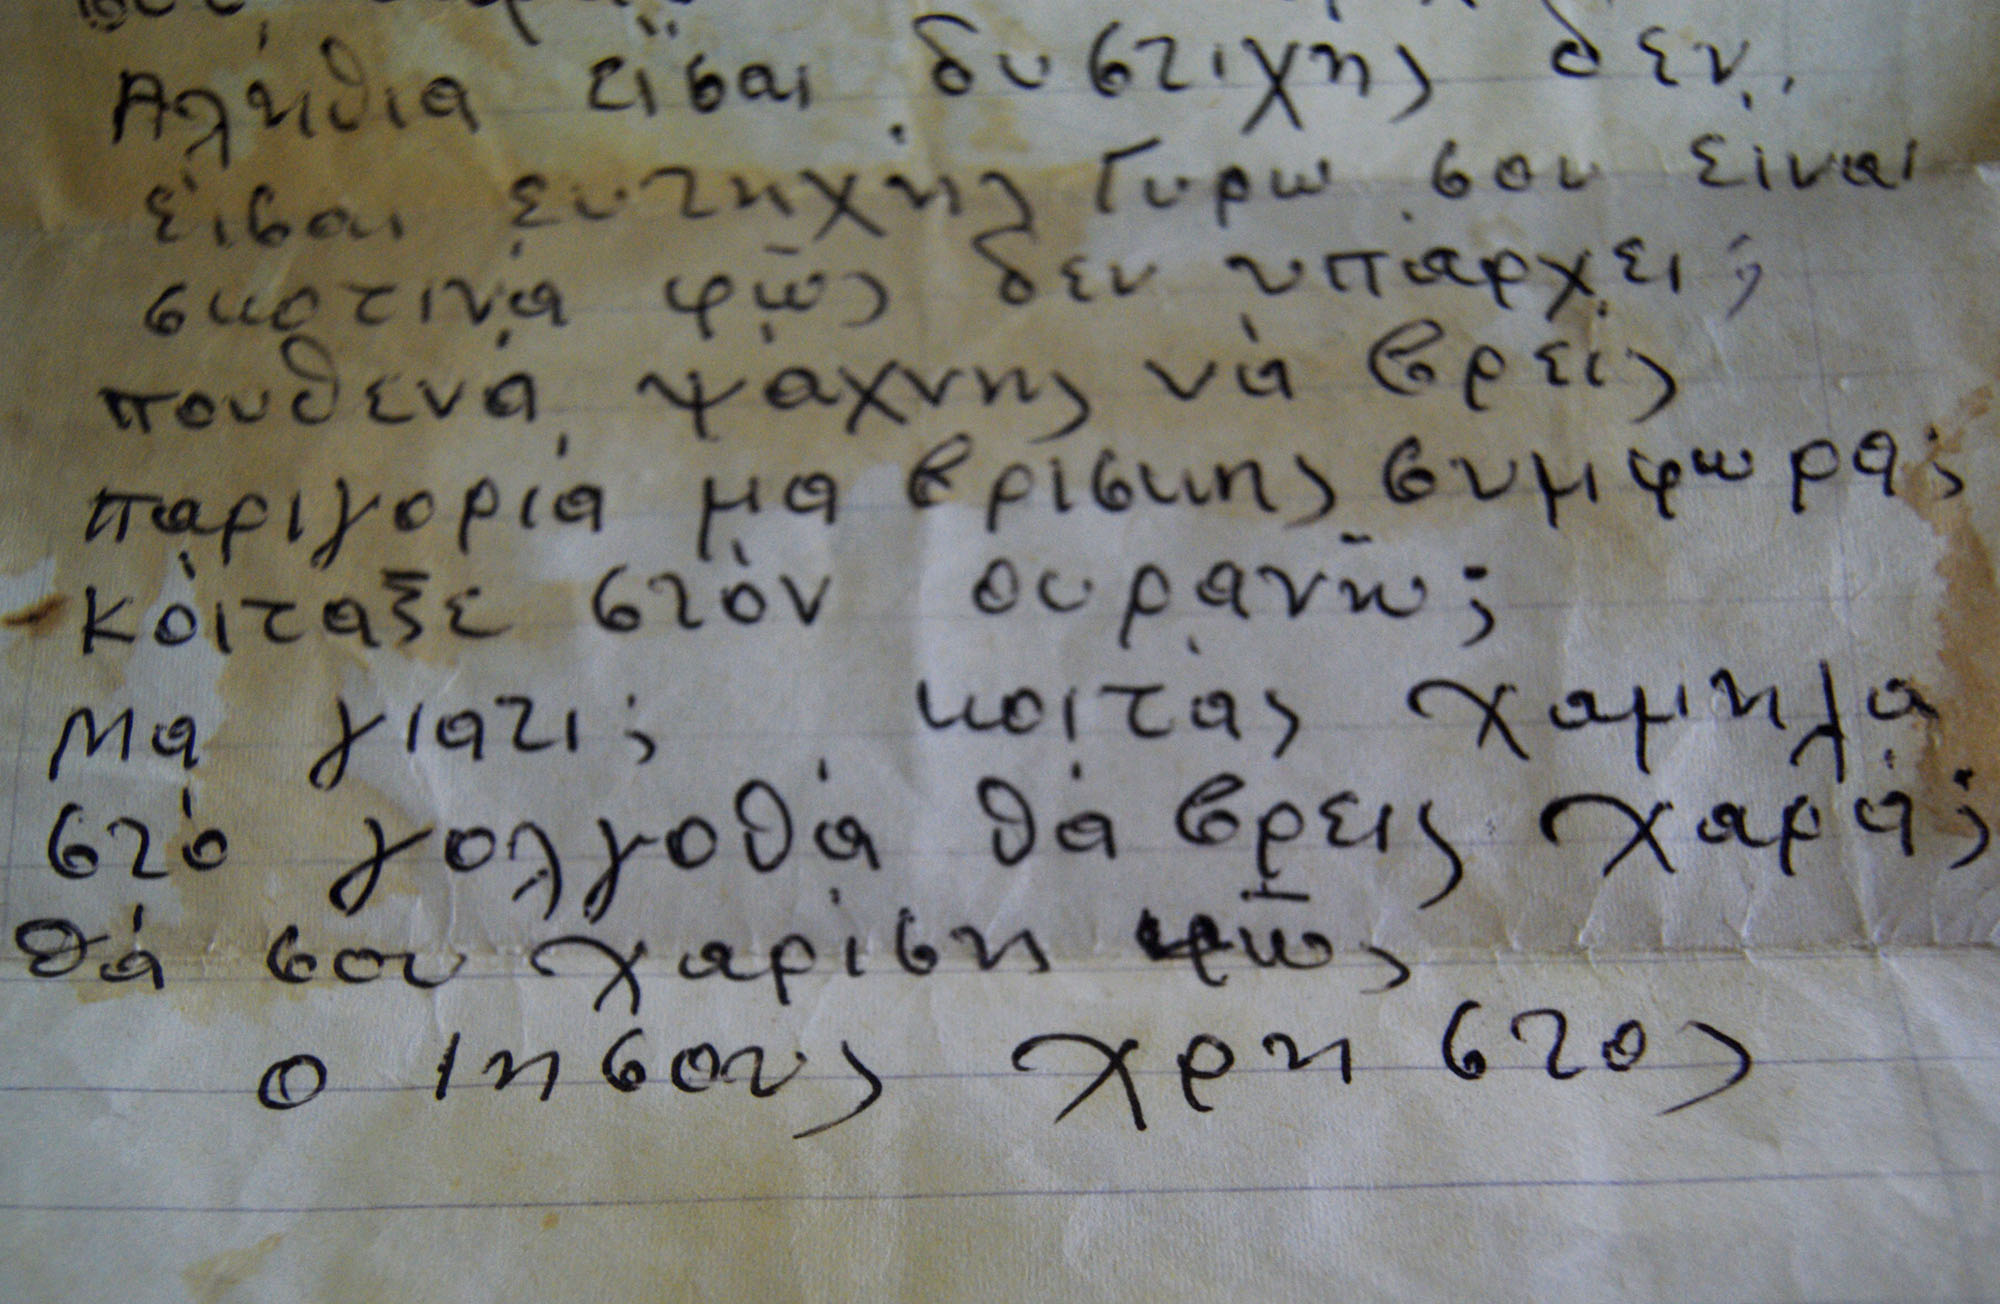 Αλήθια εἴσαι δυστιχής δεν
είσαι ευτηχής Γυρω σου είναι
σκοτινά φῶς δεν υπάρχει;
πουθενά ψάχνης νά βρείς
παριγορία μα βρίσκης συμφωρά;
Κόιταξε στόν ουρανῶ;
Μα γιατι; κοιτάς χαμηλά
στό γολγοθά θά βρεις χαρά;
θά σου χαρίση φῶς
ο Ιησους χρηστος